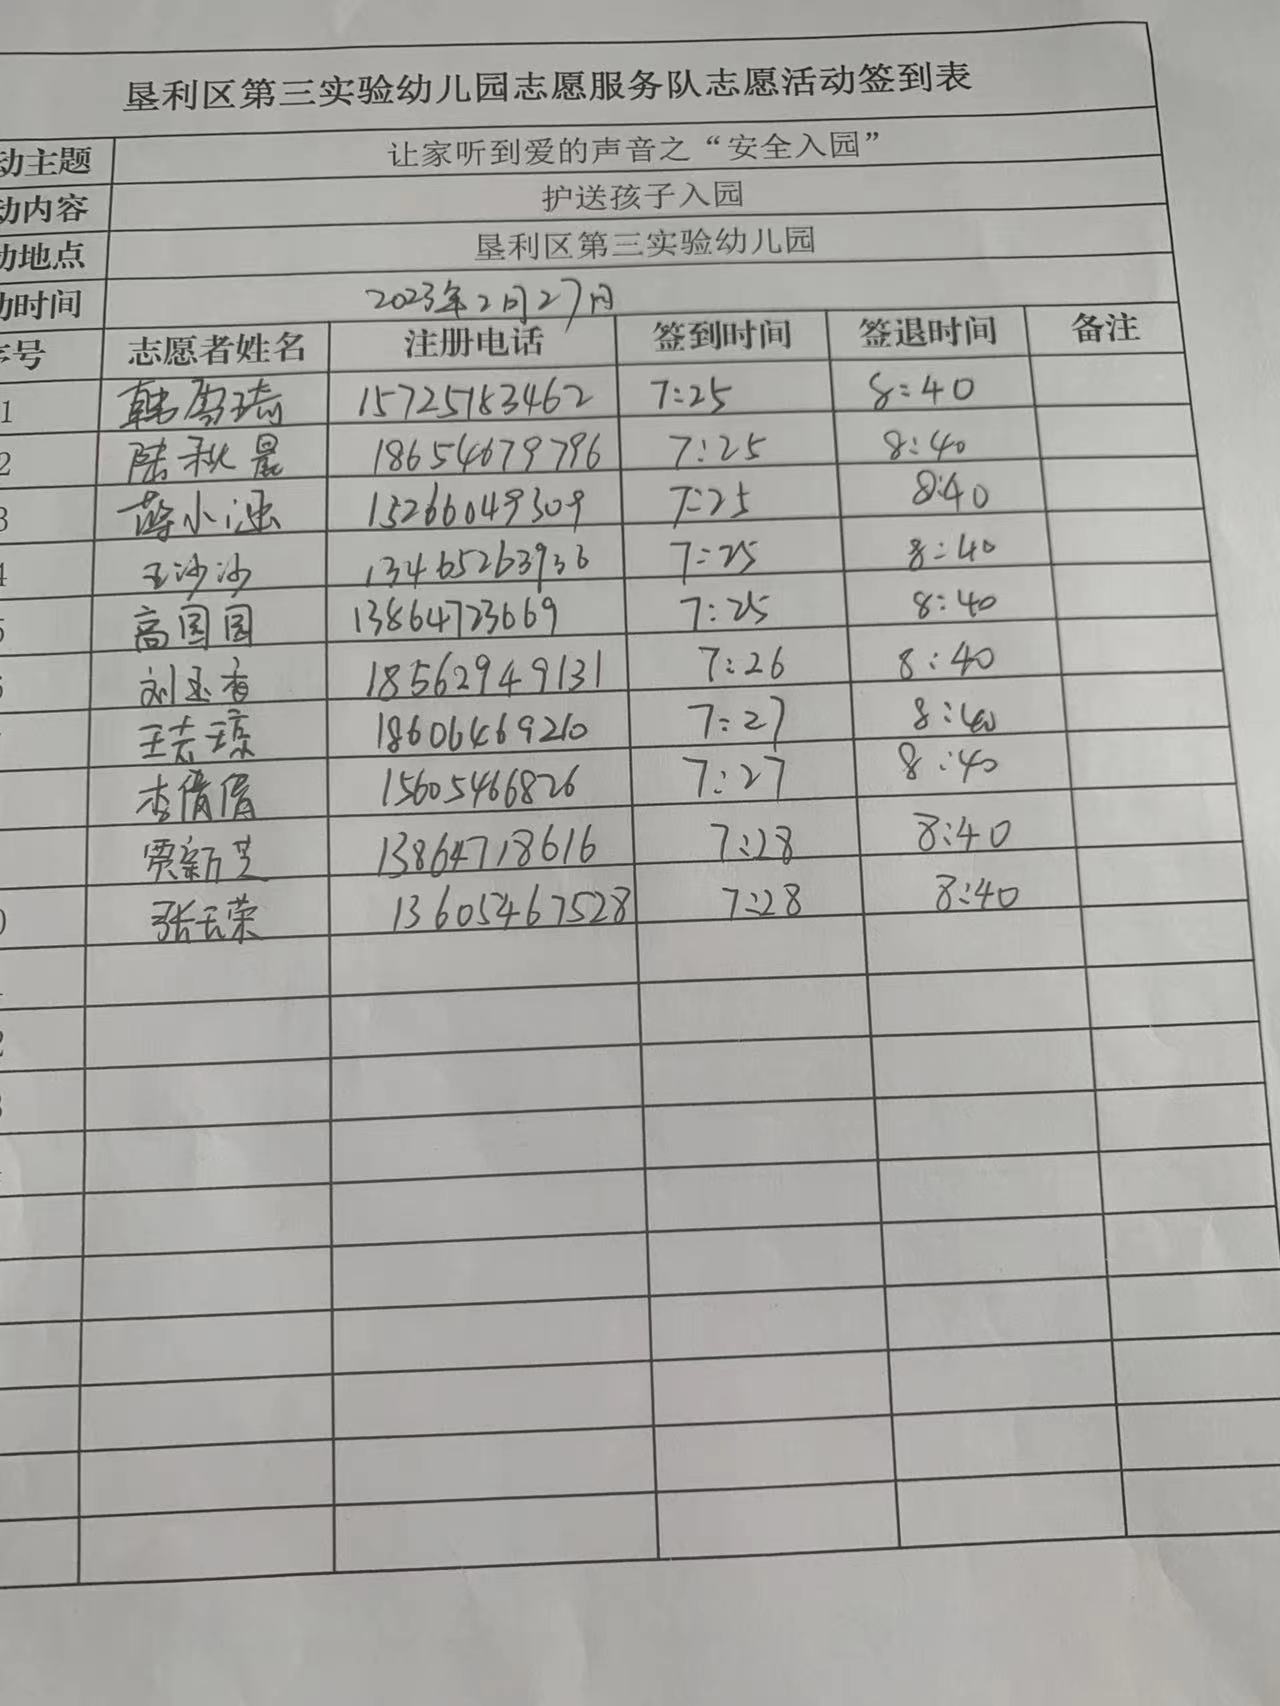 垦利区第三实验幼儿园志愿服务队志愿活动签到表
动主题 让家听到爱的声音之“安全入园”
动内容 护送孩子入园
动地点 垦利区第三实验幼儿园
动时间 2023年2月27日
序号 志愿者姓名 注册电话 签到时间 签退时间 备注
1 韩雪琦 15725183462 7:25 8:40
2 陆秋晨 18654679796 7:25 8:40
3 薛小 15266049309 7:25 8:40
4 王沙沙 13465263936 7:25 8:40
5 高园园 13864723669 7:25 8:40
6 刘玉香 18562949131 7:26 8:40
王志琼 18606469210 7:27 8:40
李倩倩 15605466826 7:27 8:40
贾新芝 13864718616 7:28 8:40
0 张云荣 13605467528 7:28 8:40
2
3